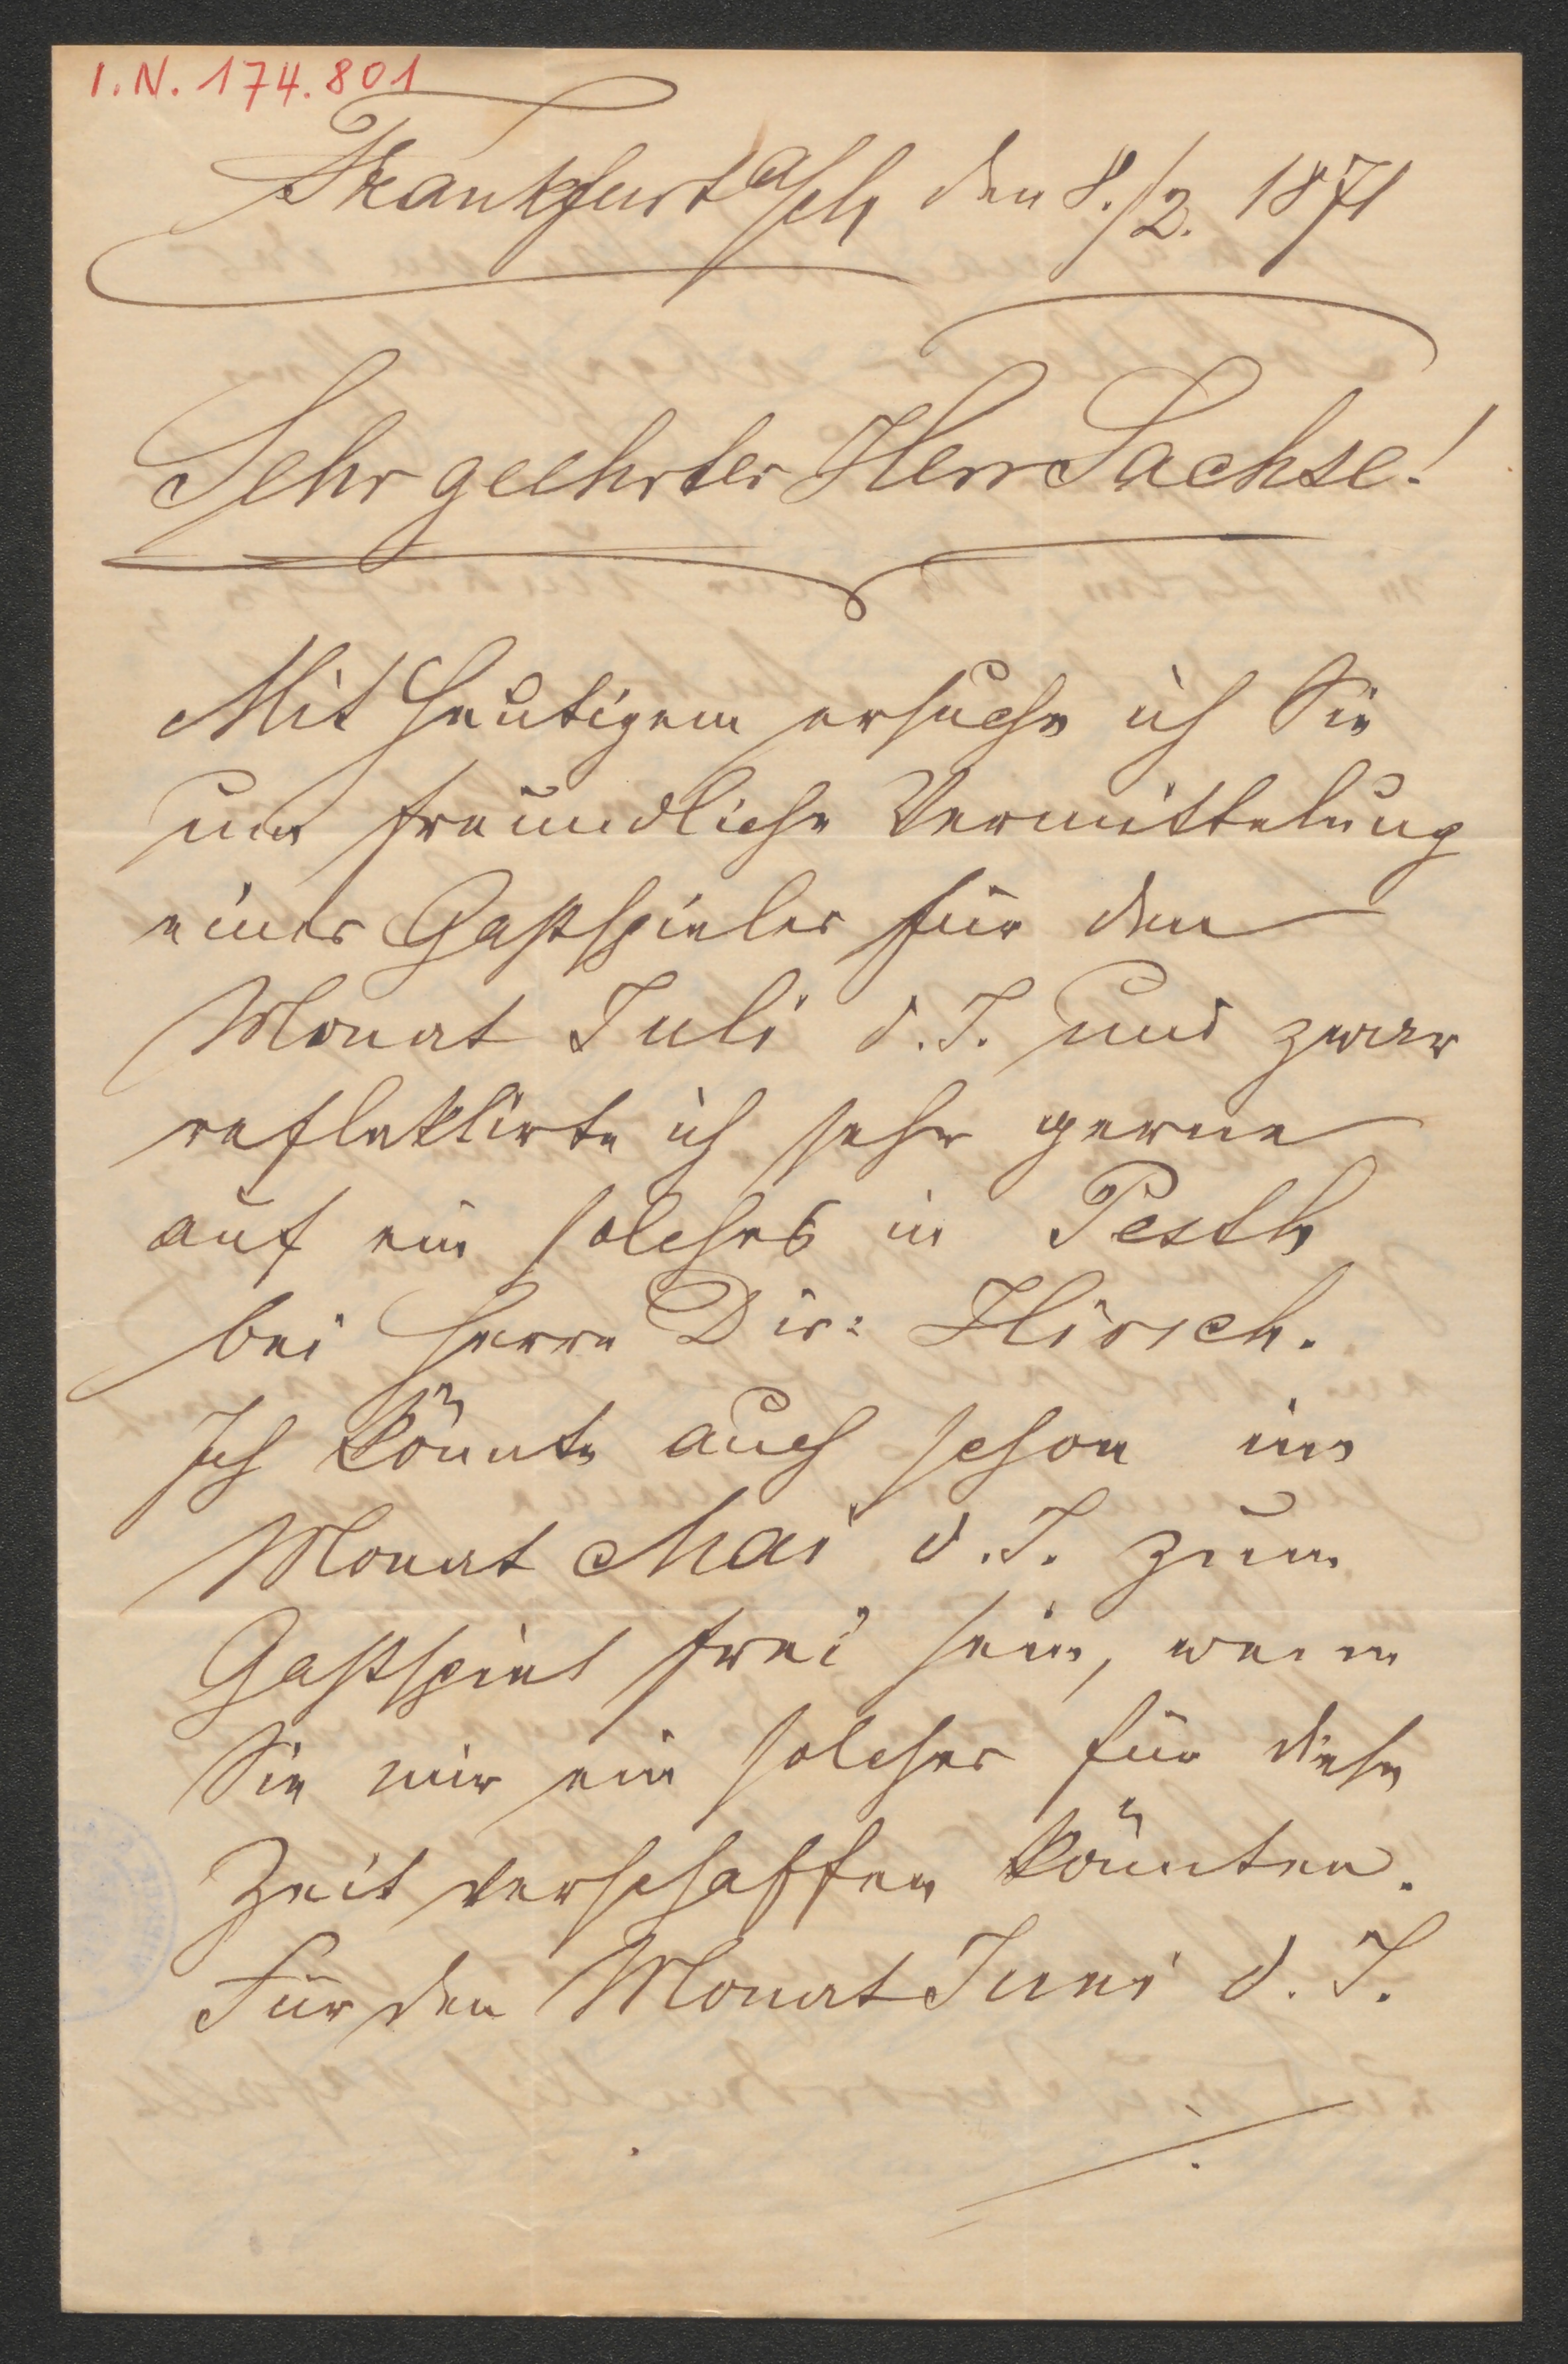 I.N. 174.801
Frankfurt a/M den 8./2. 1871
Sehr geehrter Herr Sachse!
Mit Heutigem ersuche ich Sie
um freundliche Vermittelung
eines Gastspieles für den
Monat Juli d. J. und zwar
reflektirte ich sehr gerne
auf ein solches in Pesth
bei Herrn Dir: Hirsch.
Ich könnte auch schon im
Monat Mai d. J. zum
Gastspiel frei sein, wenn
Sie mir ein solches für diese
Zeit verschaffen könnten.
Für den Monat Juni d. J.
./.